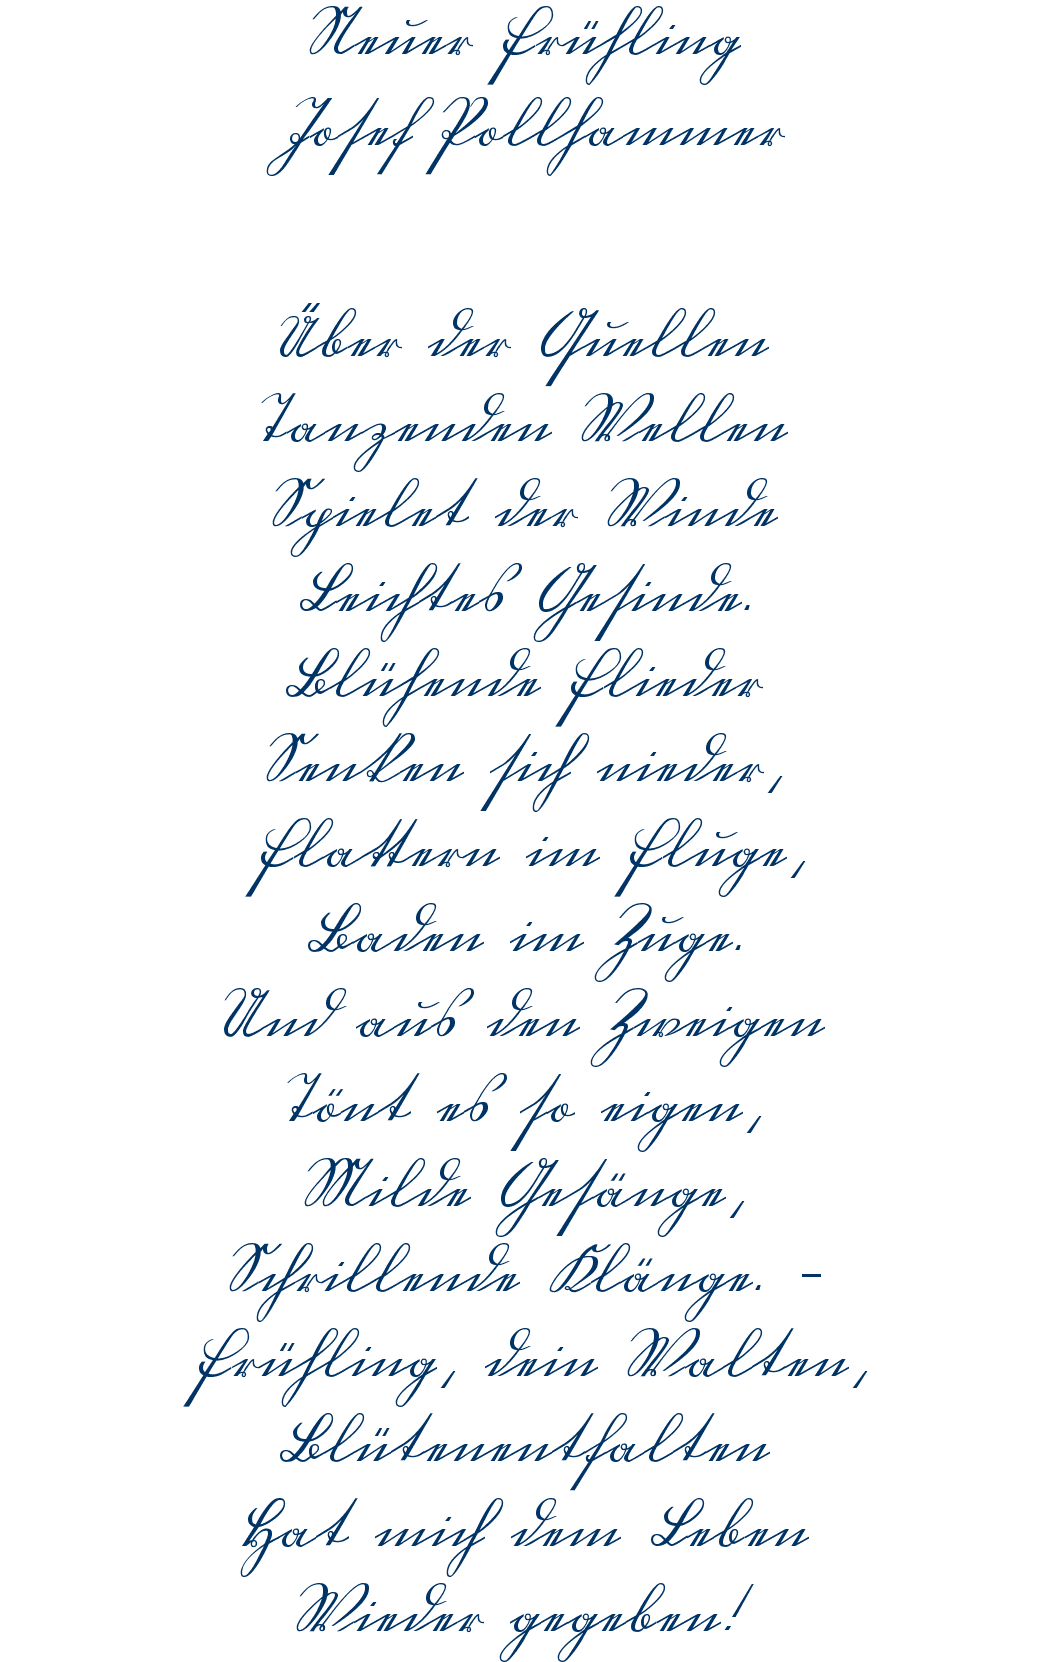 Neuer Frühling
Josef Pollhammer
Über der Quellen
Tanzenden Wellen
Spielet der Winde
Leichtes Gesinde.
Blühende Flieder
Senken sich nieder,
Flattern im Fluge,
Baden im Zuge.
Und aus den Zweigen
Tönt es so eigen,
Milde Gesänge,
Schrillende Klänge. -
Frühling, dein Walten,
Blütenentfalten
Hat mich dem Leben
Wieder gegeben!